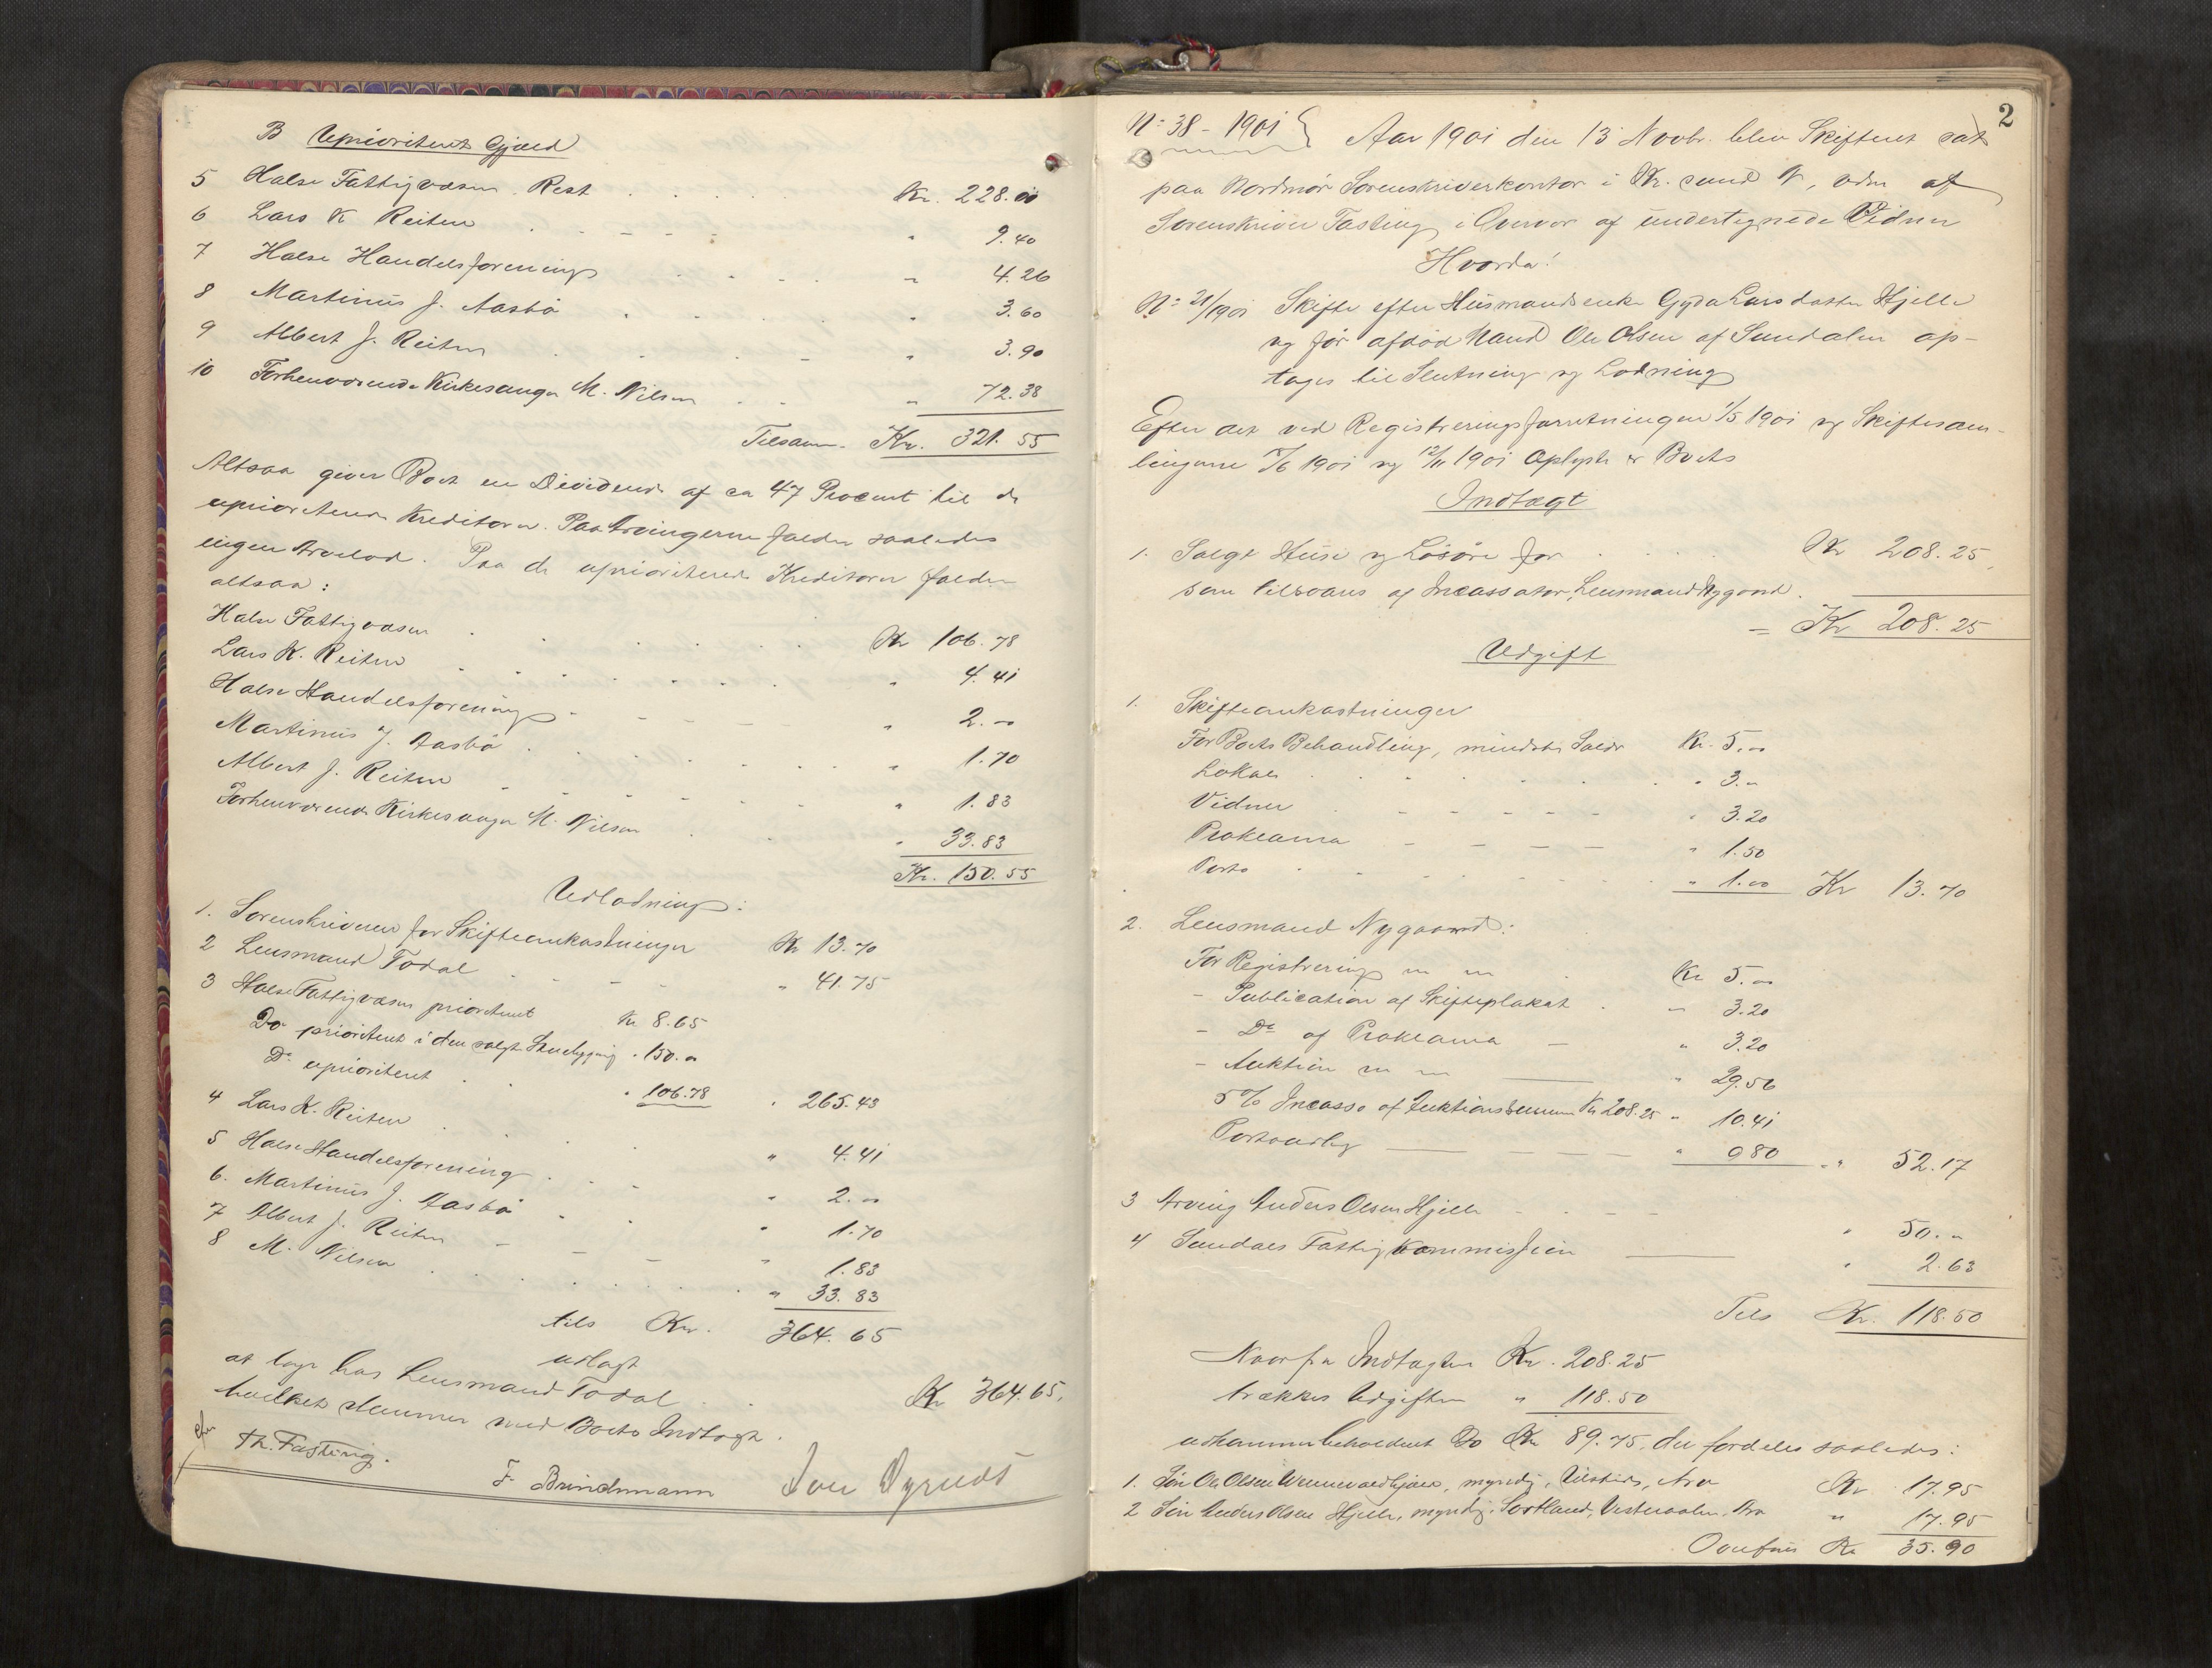 B Uprioriteret Gjæld
5 Halse Fattigvæsen Rest . . . . Kr. 228.00
6 Lars K Reiten . . . . " 9.40
7 Halse Handelsforening . . . . " 4.26
8 Martinus J. Aasbö . . . . " 3.60
9 Albert J. Reiten . . . . " 3.90
10 Forhenværende Kirkesanger M. Nilsen . . " 72.38
Tilsam. Kr. 321.55
Altsaa giver Boet en Dividende af ca 47 Procent til de
upriorterede Kreditorer. Paa Arvingerne falder saaledes
ingen Arvelod. Paa de uprioriterede Kreditorer falder
altsaa:
Halse Fattigvæsen . . . . Kr 106.78
Lars K. Reiten . . . . " 4.41
Halse Handelsforening . . . . " 2.00
Martinus J. Aasbö . . . . " 1.70
Albert J. Reiten . . . . " 1.83
Forhenværende Kirkesanger M. Nilsen . . " 33.83
Kr. 150.55
Udlodning:
1. Sorenskriveren for Skifteomkostninger Kr 13.70
2 Lensmand Todal . . . " 41.75
3 Halse Fattigvæsen prioriteret Kr 8.65
Do prioriteret i den solgte Stuebygning " 150.00
Do uprioriteret . . " 106.78 " 265.43
4 Lars K. Reiten . . . . " 4.41
5 Halse Handelsforening . . . " 2.00
6. Martinus J. Aasbö . . . " 1.70
7 Albert J. Reiten . . . " 1.83
8 M. Nilsen . . . . " 33.83
tils Kr. 364.65
udlagt
at tage hos Lensmand Todal . . . Kr 364.65.
hvilket stemmer med Boets Indtægt.
Th. Fasting.
F. Brinchmann Iver Dyrnes
2
No 38 - 1901 } Aar 1901 den 13 Novbr. blev Skifteret sat
paa Nordmør Sorenskriverkontor i Kr. sund N, adm af
Sorenskriver Fasting i Overvær af undertegnede Vidner
Hvorda!
No 21/1901 Skifte efter Husmandsenke Gyda Larsdatter Hjelle
og før afdød Mand Ole Olsen af Sundalen op-
tages til Slutning og Lodning
Efter det ved Registreringsforretningen 1/5 1901 og Skiftesam-
lingerne 7/6 1901 og 12/11 1901 Oplyste er Boets
Indtægt
1. Solgt Huse og Løsøre for . . . . Kr 208.25
som tilsvares af Incassator, Lensmand Nygaard.
= Kr 208.25
Udgift
1. Skifteomkostninger
For Boets Behandling, mindste Salær Kr. 5.00
Lokale . . . . " 3.00
Vidner . . . . " 3.20
Proklama - - - - " 1.50
Porto . . . . " 1.00 Kr 13.70
2. Lensmand Nygaard:
For Registrering m m . Kr 5.00
- Publication af Skifteplakat . " 3.20
- Do af Proklama - " 3.20
- Auktion m m " 29.56
5% Incasso af Auktionssummen Kr 208.25 " 10.41
Portoudlæg - - - " 0 80 " 52.17
3 Arving Anders Olsen Hjelle - - - " 50.00
4 Sundals Fattigkommission " 2.63
Tils Kr. 118.50
Naar fra Indtægten Kr. 208.25
trækkes Udgiften " 118.50
udkommer beholdent Bo Kr 89.75, der fordeles saaledes:
1. Søn Ole Olsen myndig, Arv Kr 17.95
2 Søn Anders Olsen Hjelle, myndig, Sortland, Vesteraalen, Arv " 17.95
Overføres Kr 35.90